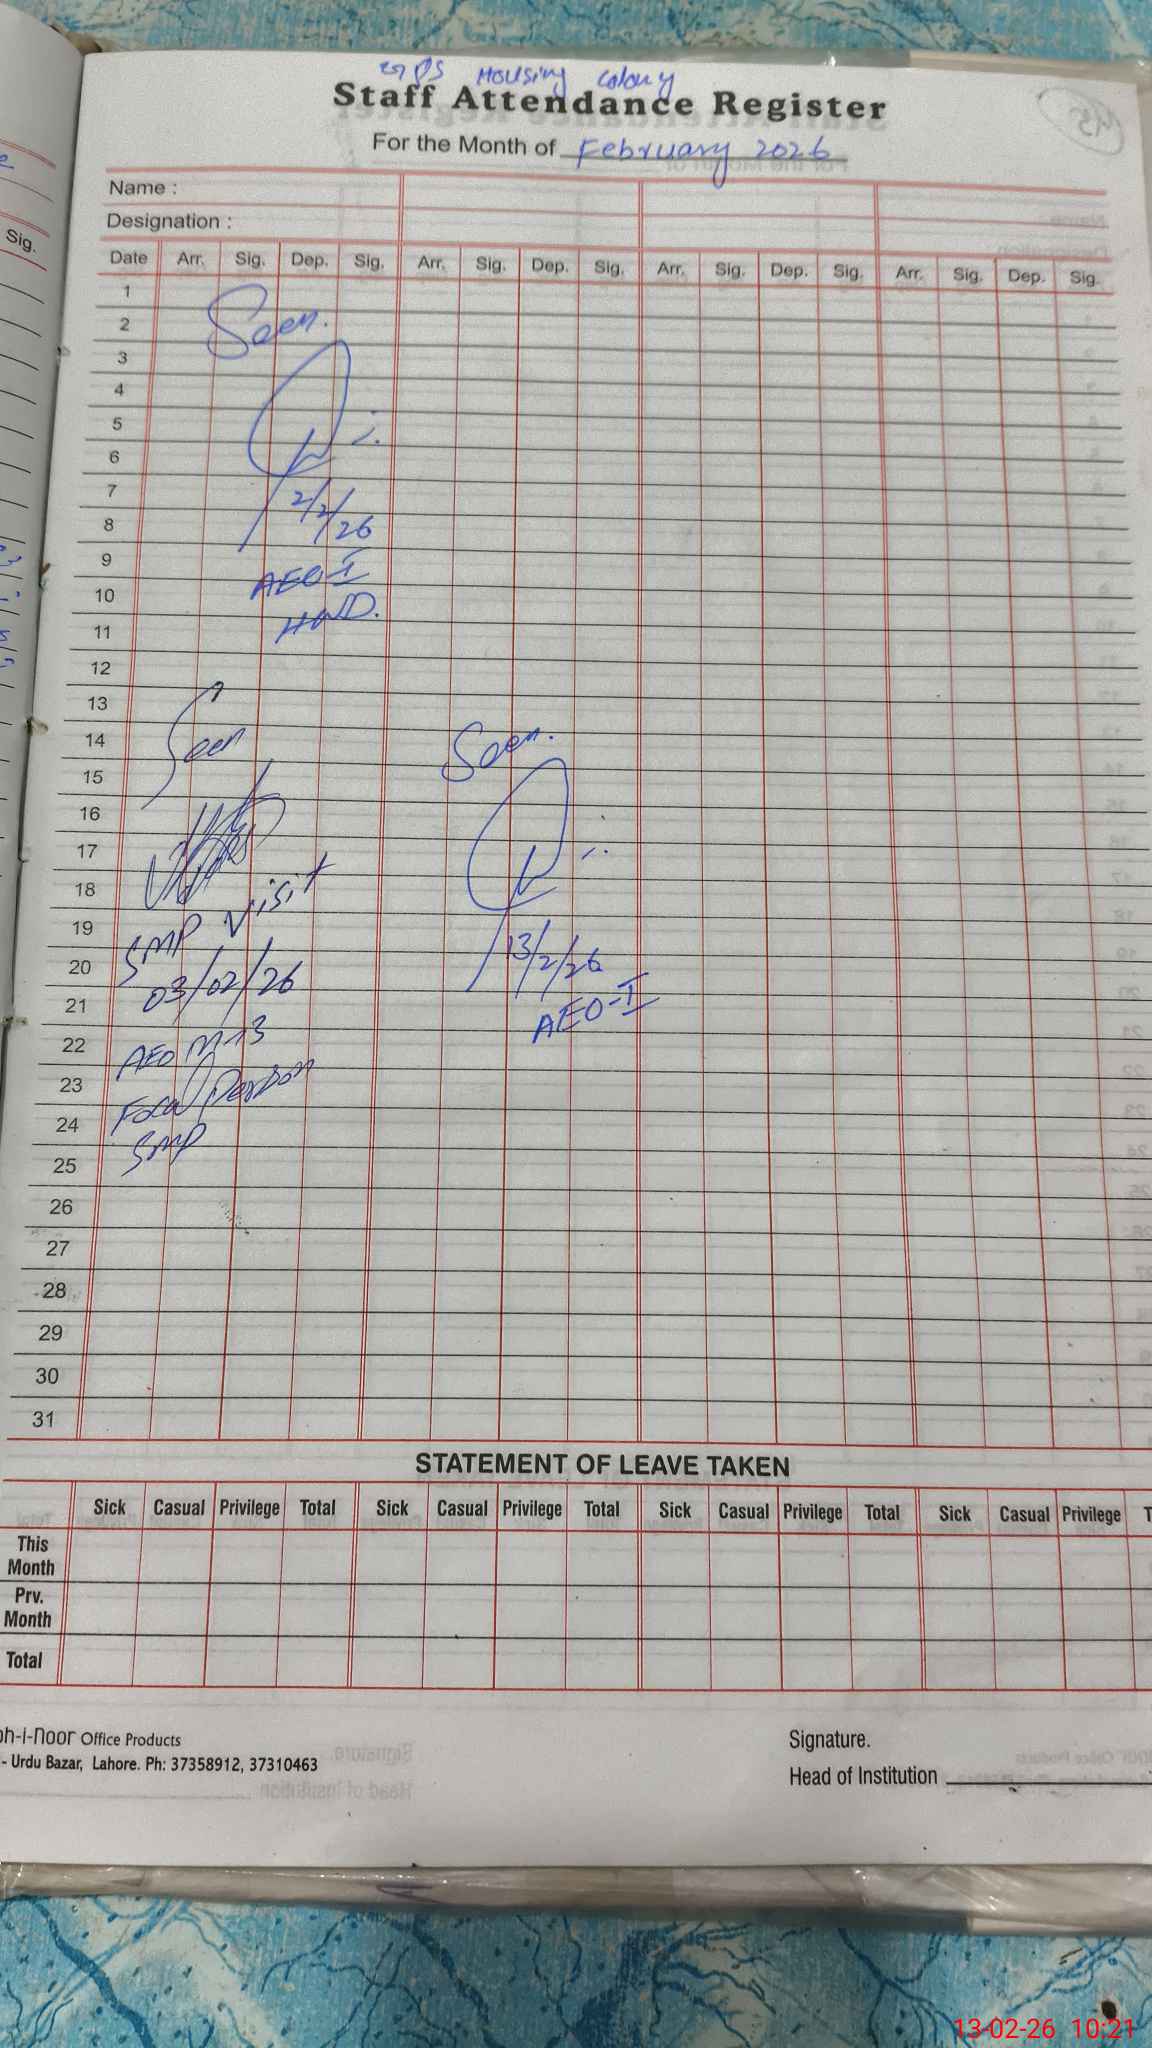 GPS Housing Colony
Staff Attendance Register
For the Month of February 2026
45
Name :
Designation :
Date Arr. Sig. Dep. Sig. Arr. Sig. Dep. Sig. Arr. Sig. Dep. Sig. Arr. Sig. Dep. Sig.
Sig.
1
2
3
4
5
6
7
8
9
10
11
12
13
14
15
16
17
18
19
20
21
22
23
24
25
26
27
28
29
30
31
Seen.
2/2/26
AEO-I
HWD.
Seen
SMP Visit
03/02/26
AEO M-13
Focal Person
SMP
Seen.
13/2/26
AEO-I
STATEMENT OF LEAVE TAKEN
Sick Casual Privilege Total Sick Casual Privilege Total Sick Casual Privilege Total Sick Casual Privilege T
This Month
Prv. Month
Total
oh-i-noor Office Products
- Urdu Bazar, Lahore. Ph: 37358912, 37310463
Signature.
Head of Institution
13-02-26 10:21